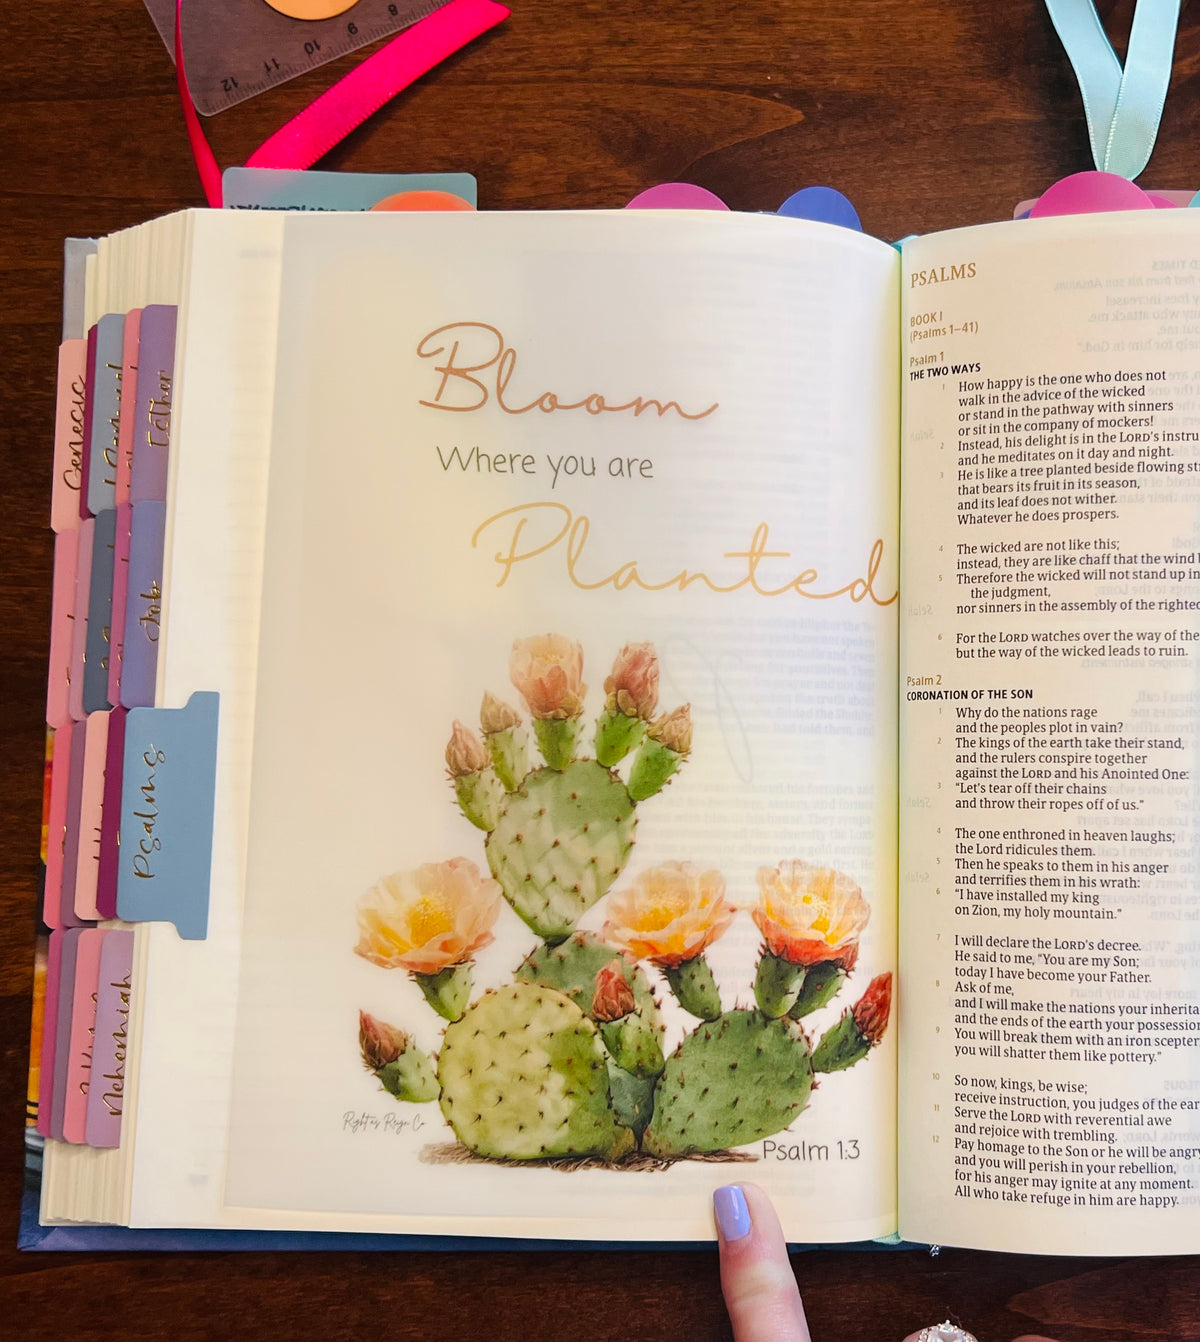 12 11 10 9 8
Genesis
1 Samuel
Esther
Job
Psalms
Nehemiah
Bloom
Where you are
Planted
Right as Reign Co
Psalm 1:3
PSALMS
BOOK I
(Psalms 1–41)
Psalm 1
THE TWO WAYS
1 How happy is the one who does not
walk in the advice of the wicked
or stand in the pathway with sinners
or sit in the company of mockers!
2 Instead, his delight is in the LORD's instru
and he meditates on it day and night.
3 He is like a tree planted beside flowing st
that bears its fruit in its season,
and its leaf does not wither.
Whatever he does prospers.
4 The wicked are not like this;
instead, they are like chaff that the wind
5 Therefore the wicked will not stand up in
the judgment,
nor sinners in the assembly of the righteo
6 For the LORD watches over the way of the
but the way of the wicked leads to ruin.
Psalm 2
CORONATION OF THE SON
1 Why do the nations rage
and the peoples plot in vain?
2 The kings of the earth take their stand,
and the rulers conspire together
against the LORD and his Anointed One:
3 "Let's tear off their chains
and throw their ropes off of us."
4 The one enthroned in heaven laughs;
the Lord ridicules them.
5 Then he speaks to them in his anger
and terrifies them in his wrath:
6 "I have installed my king
on Zion, my holy mountain."
7 I will declare the LORD's decree.
He said to me, "You are my Son;
today I have become your Father.
8 Ask of me,
and I will make the nations your inherita
and the ends of the earth your possession
9 You will break them with an iron scepter
you will shatter them like pottery."
10 So now, kings, be wise;
receive instruction, you judges of the ear
11 Serve the LORD with reverential awe
and rejoice with trembling.
12 Pay homage to the Son or he will be angry
and you will perish in your rebellion,
for his anger may ignite at any moment.
All who take refuge in him are happy.